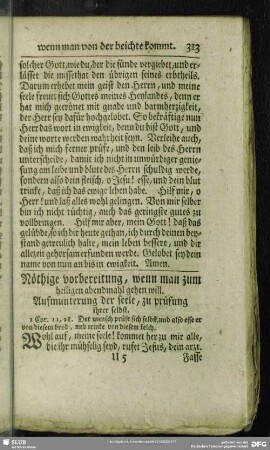 wenn man von der beichte kommt. 313
solcher Gott, wie du, der die sünde vergiebet, und er-
lässet die missethat den übrigen seines erbtheils.
Darum erhebet mein geist den Herrn, und meine
seele freuet sich Gottes meines Heylandes, denn er
hat mich gecrönet mit gnade und barmhertzigkeit,
der Herr sey dafür hochgelobet. So bekräftige nun
Herr das wort in ewigkeit, denn du bist Gott, und
deine worte werden wahrheit seyn. Verleihe auch,
daß ich mich ferner prüfe, und den leib des Herrn
unterscheide, damit ich nicht in unwürdiger genies-
sung am leibe und blute des Herrn schuldig werde,
sondern also dein fleisch, o Jesu! esse, und dein blut
trinke, daß ich das ewige leben habe. Hilf mir, o
Herr! und laß alles wohl gelingen. Von mir selber
bin ich nicht tüchtig, auch das geringste gutes zu
vollbringen. Hilf mir aber, mein Gott! daß das
gelübde, so ich dir heute gethan, ich durch deinen bey-
stand getreulich halte, mein leben bessere, und dir
allezeit gehorsam erfunden werde. Gelobet sey dein
name von nun an bis in ewigkeit. Amen.
Nöthige vorbereitung, wenn man zum
heiligen abendmahl gehen will.
Aufmunterung der seele, zu prüfung
ihrer selbst.
1 Cor. 11, 28. Der mensch prüfe sich selbst, und also esse er
von diesem brod, und trinke von diesem kelch.
Wohl auf, meine seele! kommet her zu mir alle,
die ihr mühselig seyd, rufet Jesus, dein arzt.
U 5 Fasse
SLUB